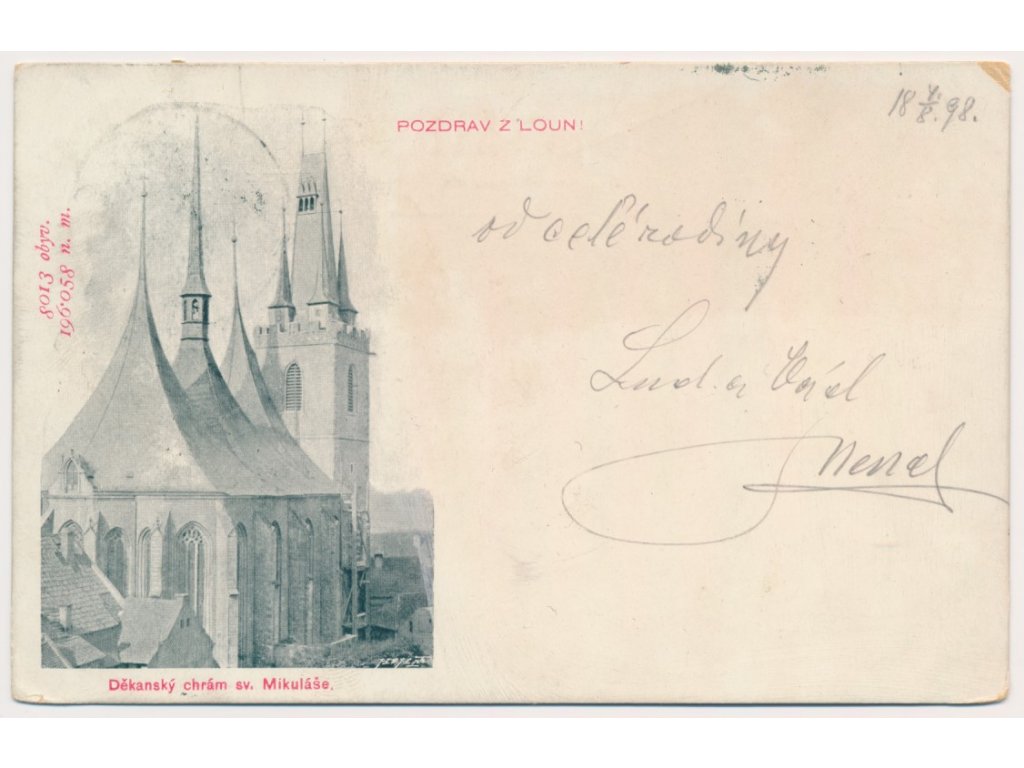 18 / 8. 98.
POZDRAV Z LOUN!
8013 obyv.
196·058 n. m.
od celé rodiny
Lud. a
Děkanský chrám sv. Mikuláše.